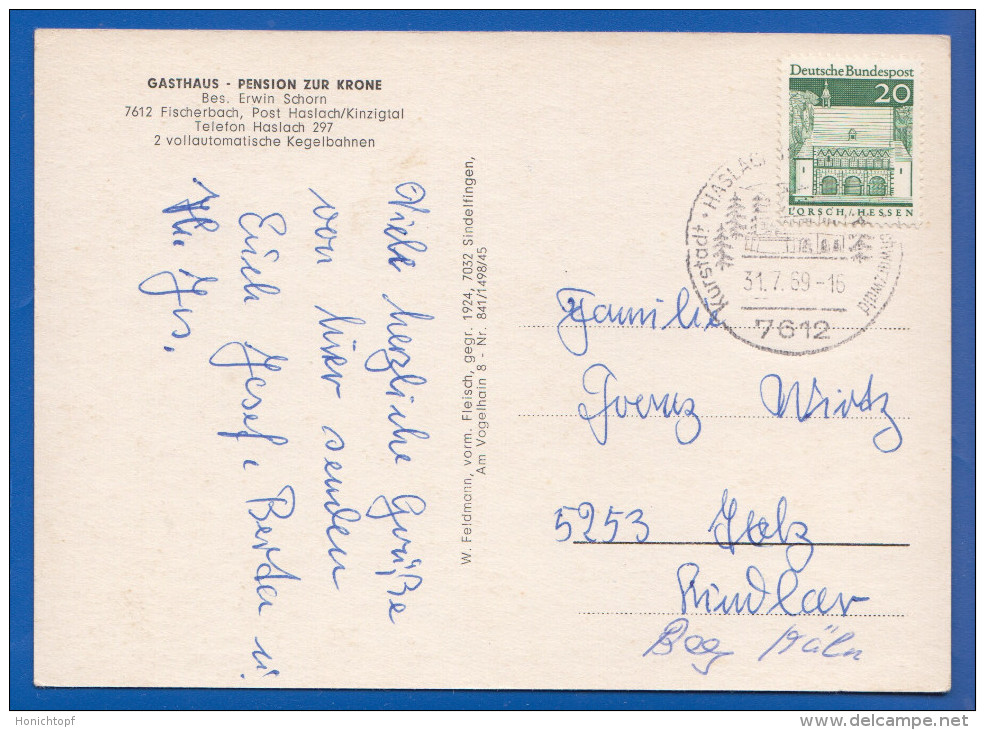 GASTHAUS - PENSION ZUR KRONE
Bes. Erwin Schorn
7612 Fischerbach, Post Haslach/Kinzigtal
Telefon Haslach 297
2 vollautomatische Kegelbahnen
Viele herzliche Grüße
von hier senden
Euch Josef, Berta u.
W. Feldmann, vorm. Fleisch, gegr. 1924, 7032 Sindelfingen,
Am Vogelhain 8 - Nr. 841/1498/45
Deutsche Bundespost
20
LORSCH/HESSEN
Kurstadt • HASLACH
Schwarzwald
31.7.69-16
7612
Familie
Wirtz
5253
Rindlar
Köln
Honichtopf
www.delcampe.net